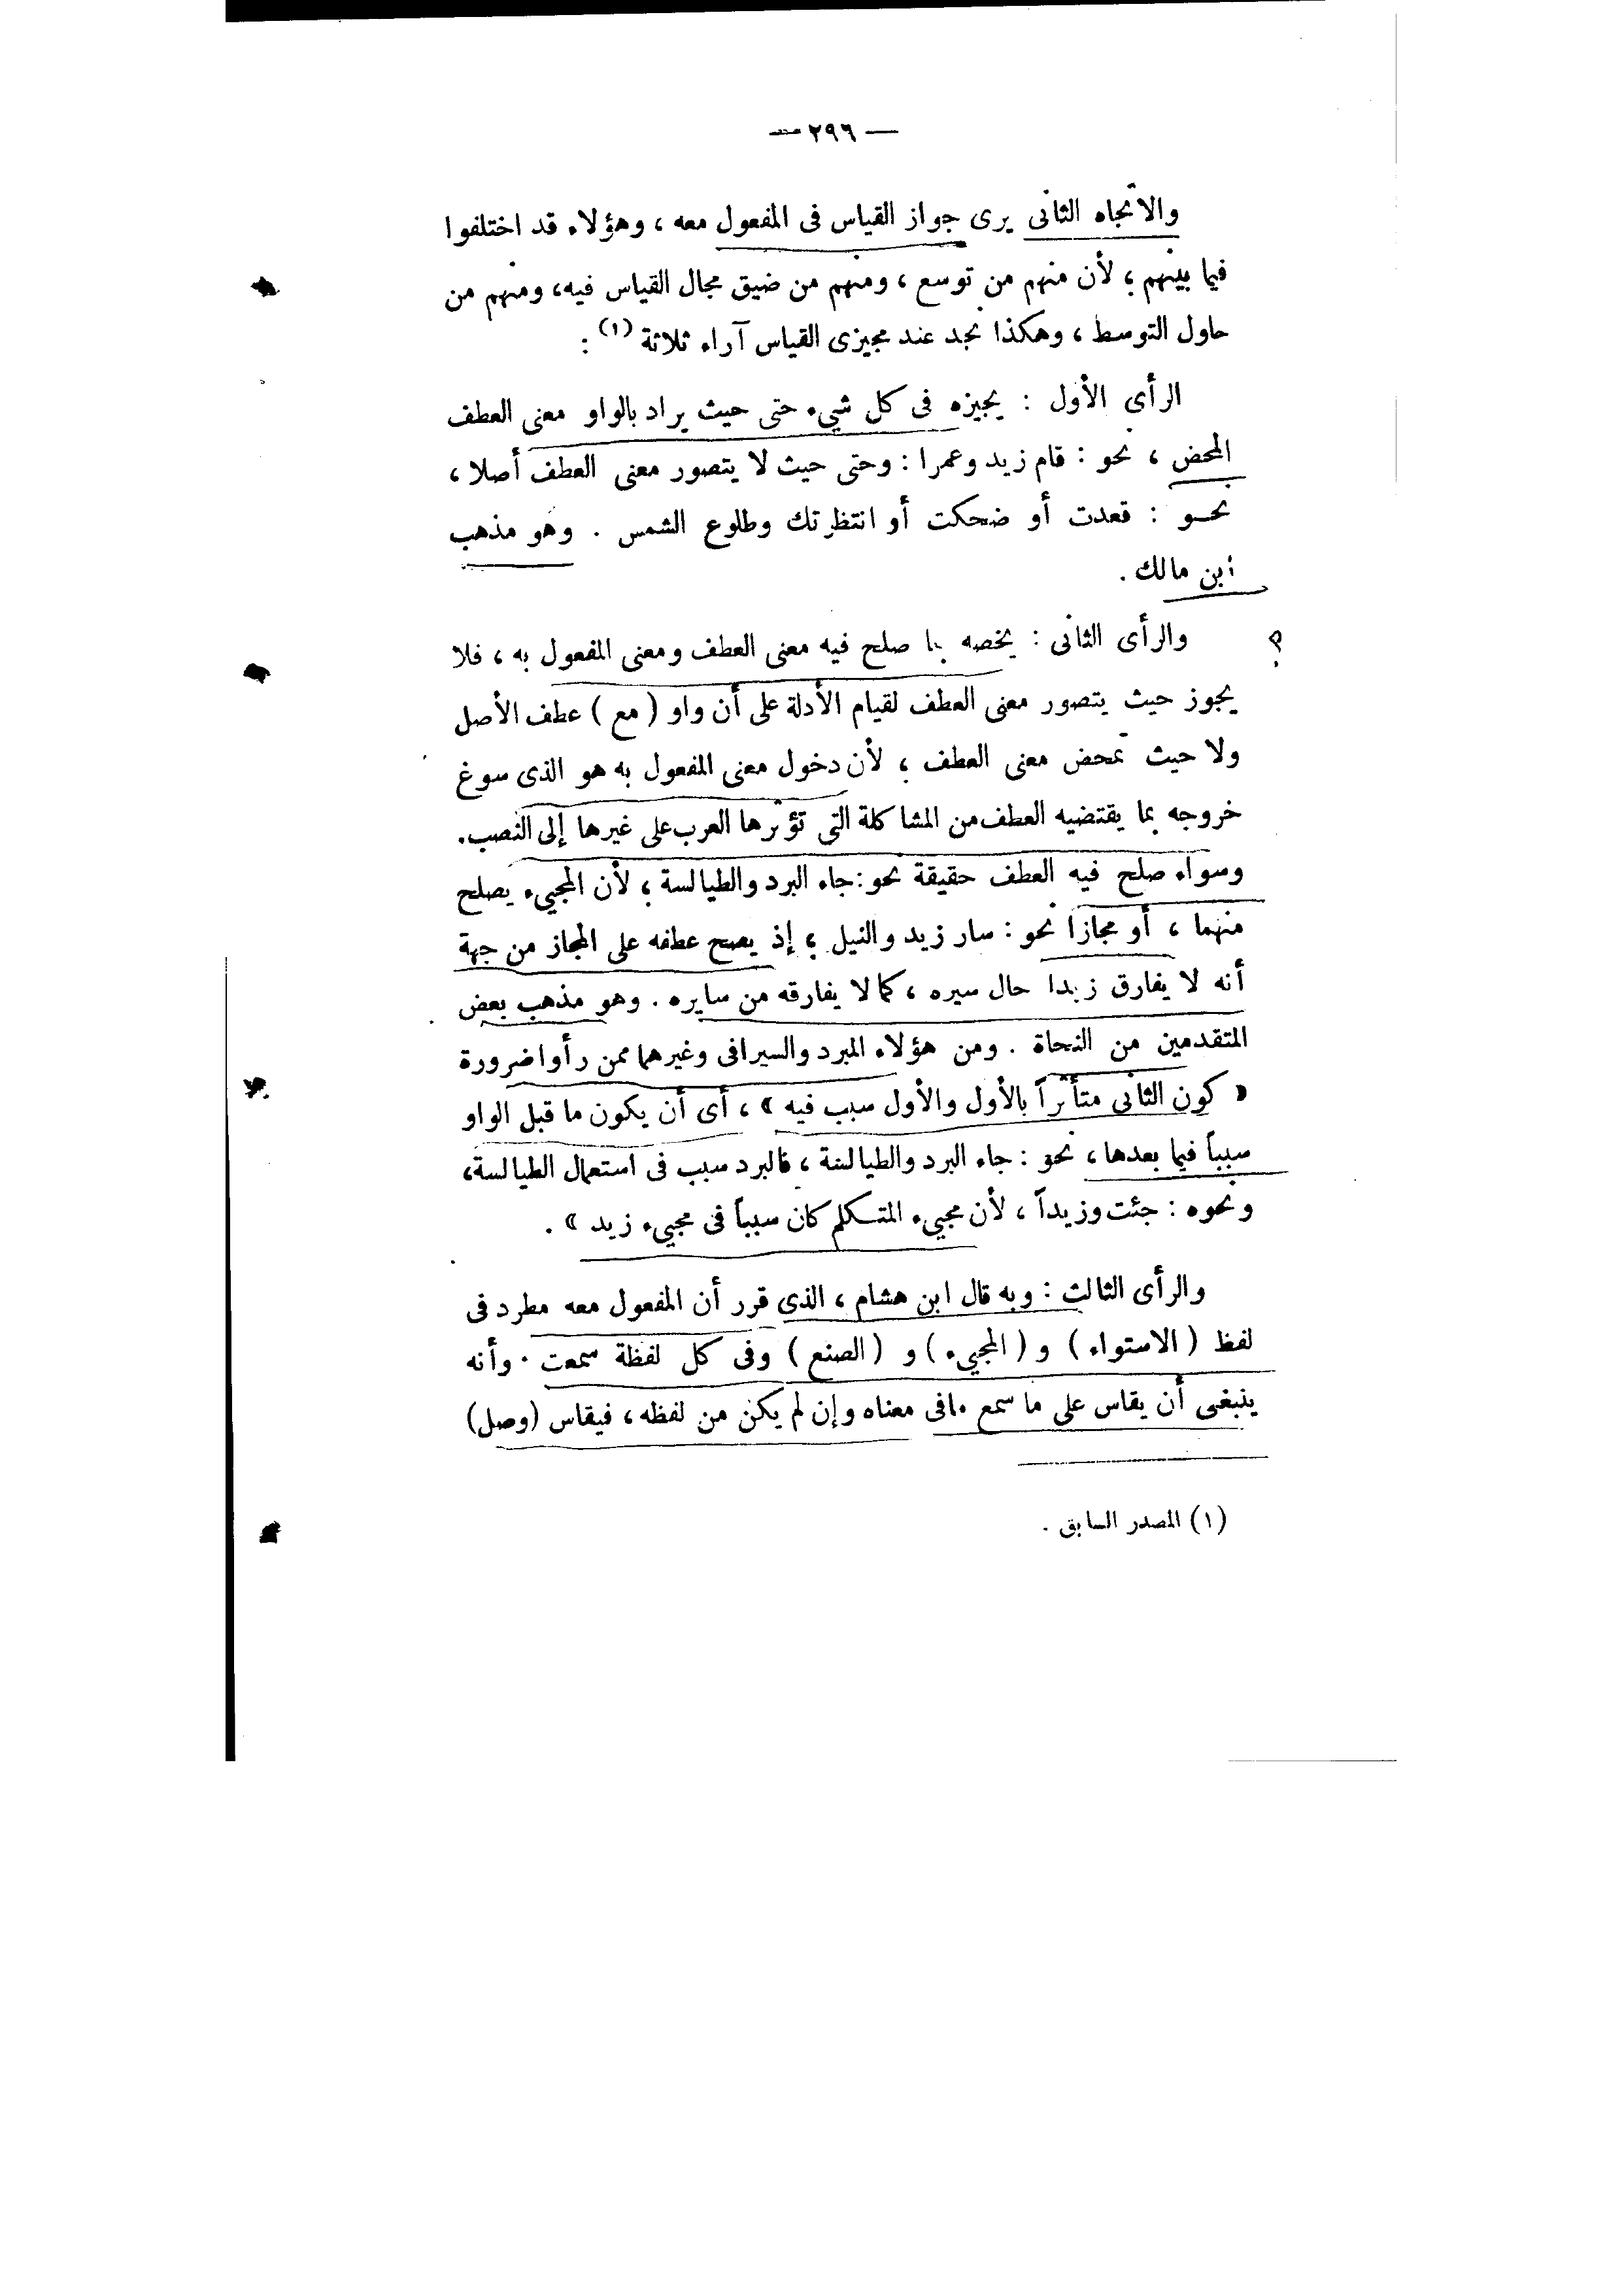 — ٢٩٦ —
والاتجاه الثانى يرى جواز القياس فى المفعول معه ، وهؤلاء قد اختلفوا
فيما بينهم ؛ لأن منهم من توسع ، ومنهم من ضيق مجال القياس فيه، ومنهم من
حاول التوسط ، وهكذا نجد عند مجيزى القياس آراء ثلاثة (١) :
الرأى الأول : يجيزه فى كل شىء حتى حيث يراد بالواو معنى العطف
المحض ، نحو : قام زيد وعمرا : وحتى حيث لا يتصور معنى العطف أصلا ،
نحـو : قعدت أو ضحكت أو انتظرتك وطلوع الشمس . وهو مذهب
ابن مالك .
والرأى الثانى : يخصه بما صلح فيه معنى العطف ومعنى المفعول به ، فلا
يجوز حيث يتصور معنى العطف لقيام الأدلة على أن واو ( مع ) عطف الأصل
ولا حيث تمحض معنى العطف ؛ لأن دخول معنى المفعول به هو الذى سوغ
خروجه بما يقتضيه العطف من المشاكلة التى تؤثرها العرب على غيرها إلى النصب.
وسواء صلح فيه العطف حقيقة نحو: جاء البرد والطيالسة ؛ لأن المجىء يصلح
منهما ، أو مجازا نحو : سار زيد والنيل ؛ إذ يصح عطفه على المجاز من جهة
أنه لا يفارق زيدا حال سيره ، كما لا يفارقه من سايره . وهو مذهب بعض
المتقدمين من النحاة . ومن هؤلاء المبرد والسيرافى وغيرهما ممن رأوا ضرورة
« كون الثانى متأثراً بالأول والأول سبب فيه » ، أى أن يكون ما قبل الواو
سبباً فيما بعدها ، نحو : جاء البرد والطيالسة ، فالبرد سبب فى استعمال الطيالسة،
ونحوه : جئت وزيداً ، لأن مجىء المتـكلم كان سبباً فى مجىء زيد » .
والرأى الثالث : وبه قال ابن هشام ، الذى قرر أن المفعول معه مطرد فى
لفظ ( الاستواء ) و ( المجىء ) و ( الصنع ) وفى كل لفظة سمعت . وأنه
ينبغى أن يقاس على ما سمع مافى معناه وإن لم يكن من لفظه ، فيقاس (وصل)
(١) المصدر السابق .